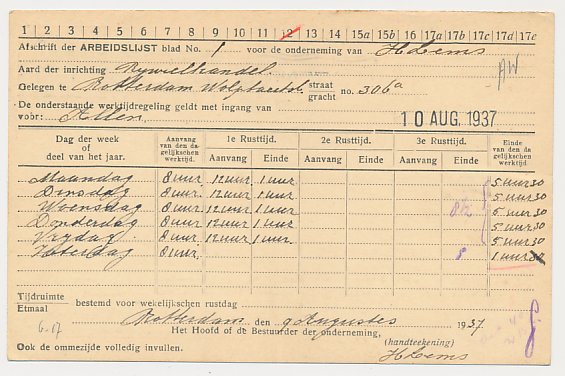 1 2 3 4 5 6 7 8 9 10 11 12 13 14 15a 15b 16 17a 17b 17c 17d 17e
Afschrift der ARBEIDSLIJST blad No. 1 voor de onderneming van H Lems
Aard der inrichting Rijwielhandel.
AW
Gelegen te Rotterdam straat gracht no. 306a
De onderstaande werktijdregeling geldt met ingang van 10 AUG. 1937
voor: Allen.
Dag der week of deel van het jaar. Aanvang van den dagelijkschen werktijd. 1e Rusttijd. 2e Rusttijd. 3e Rusttijd. Einde van den dagelijkschen werktijd.
Aanvang Einde Aanvang Einde Aanvang Einde
Maandag 8 uur 12 uur 1 uur 5 uur 30
Dinsdag 8 uur 12 uur 1 uur 5 uur 30
Woensdag 8 uur 12 uur 1 uur 8½ 5 uur 30
Donderdag 8 uur 12 uur 1 uur 5 uur 30
Vrijdag 8 uur 12 uur 1 uur. 5 uur 30
Zaterdag 8 uur. 5 1 uur 30
Tijdruimte
Etmaal bestemd voor wekelijkschen rustdag
Rotterdam den 9 Augustus 1937
Het Hoofd of de Bestuurder der onderneming,
(handteekening)
Ook de ommezijde volledig invullen. H Lems